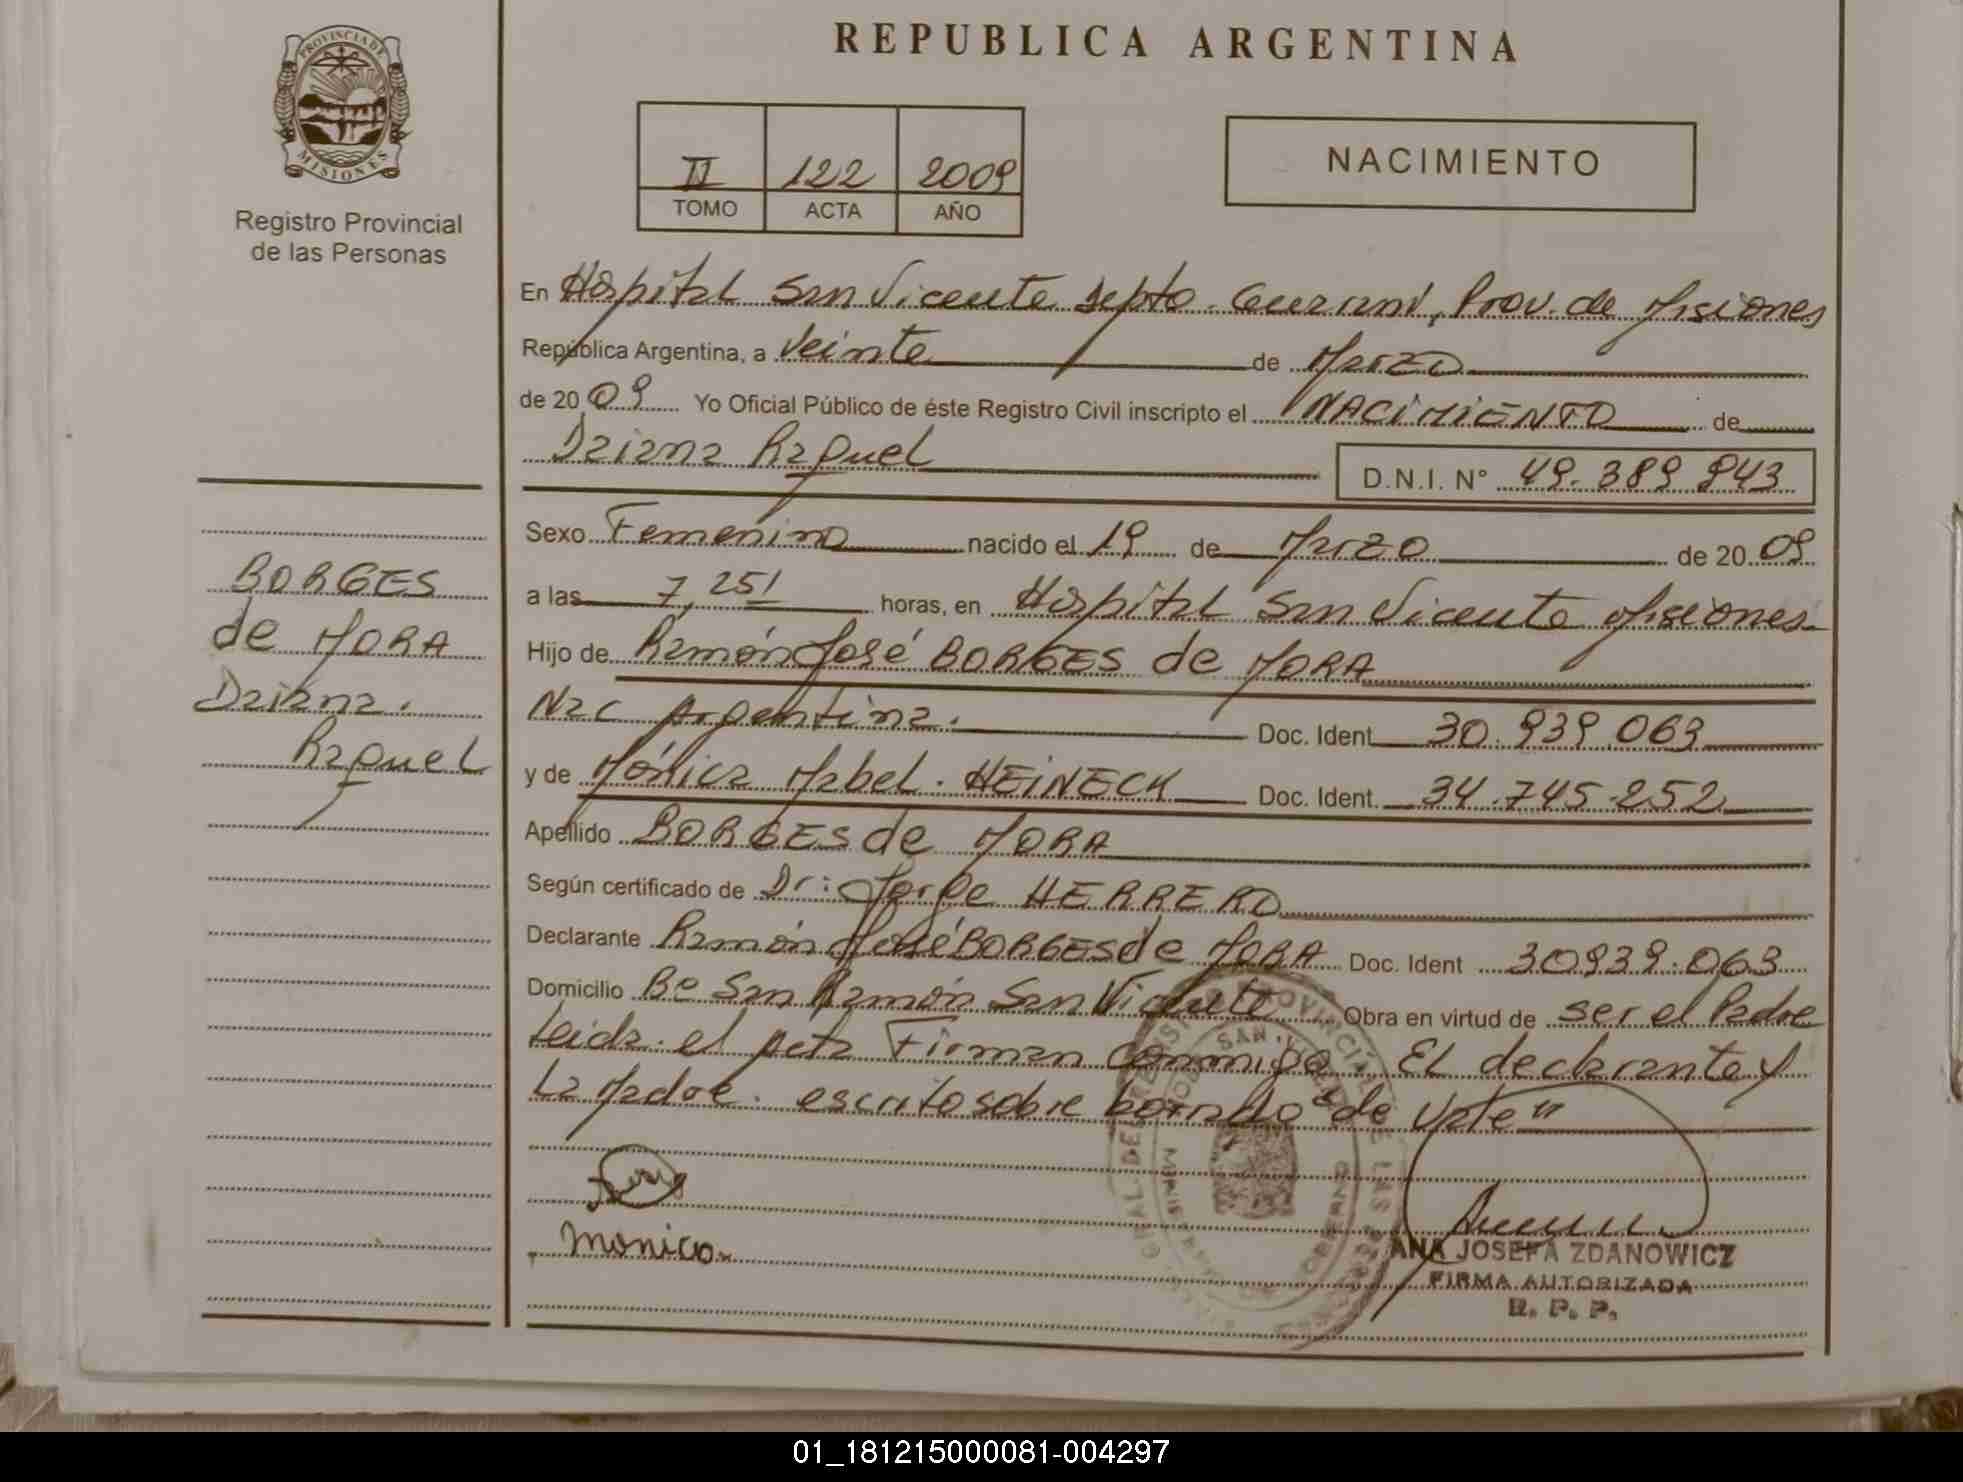 REPUBLICA ARGENTINA
PROVINCIA DE
MISIONES
Registro Provincial
de las Personas
II 122 2009
TOMO ACTA AÑO
NACIMIENTO
En Hospital San Vicente Depto. Guaraní, Prov. de Misiones
República Argentina, a Veinte de Marzo
de 2009 Yo Oficial Público de éste Registro Civil inscripto el NACIMIENTO de
Daiana Raquel D.N.I. N° 49.389.943
Sexo Femenino nacido el 19 de Marzo de 2009
a las 7,25' horas, en Hospital San Vicente Misiones
Hijo de Ramón José BORGES de MORA
Nac Argentina. Doc. Ident 30.939.063
y de Mónica Mabel. HEINECK Doc. Ident 34.745.252
Apellido BORGES de MORA
Según certificado de Dr: Jorge HERRERO
Declarante Ramón José BORGES de MORA Doc. Ident 30939.063
Domicilio Bº San Ramón San Vicente Obra en virtud de ser el Padre
Leida el Acta Firman conmigo El declarante y
La Madre. escrito sobre borrado "de Vale"
BORGES
de MORA
Daiana.
Raquel
Monica
ANA JOSEFA ZDANOWICZ
FIRMA AUTORIZADA
R. P. P.
01_181215000081-004297